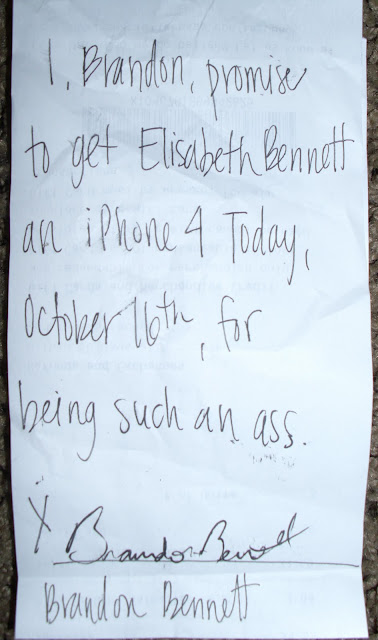 I, Brandon, promise
to get Elisabeth Bennett
an iPhone 4 Today,
October 16th, for
being such an ass.
X Brandon Bennett
Brandon Bennett